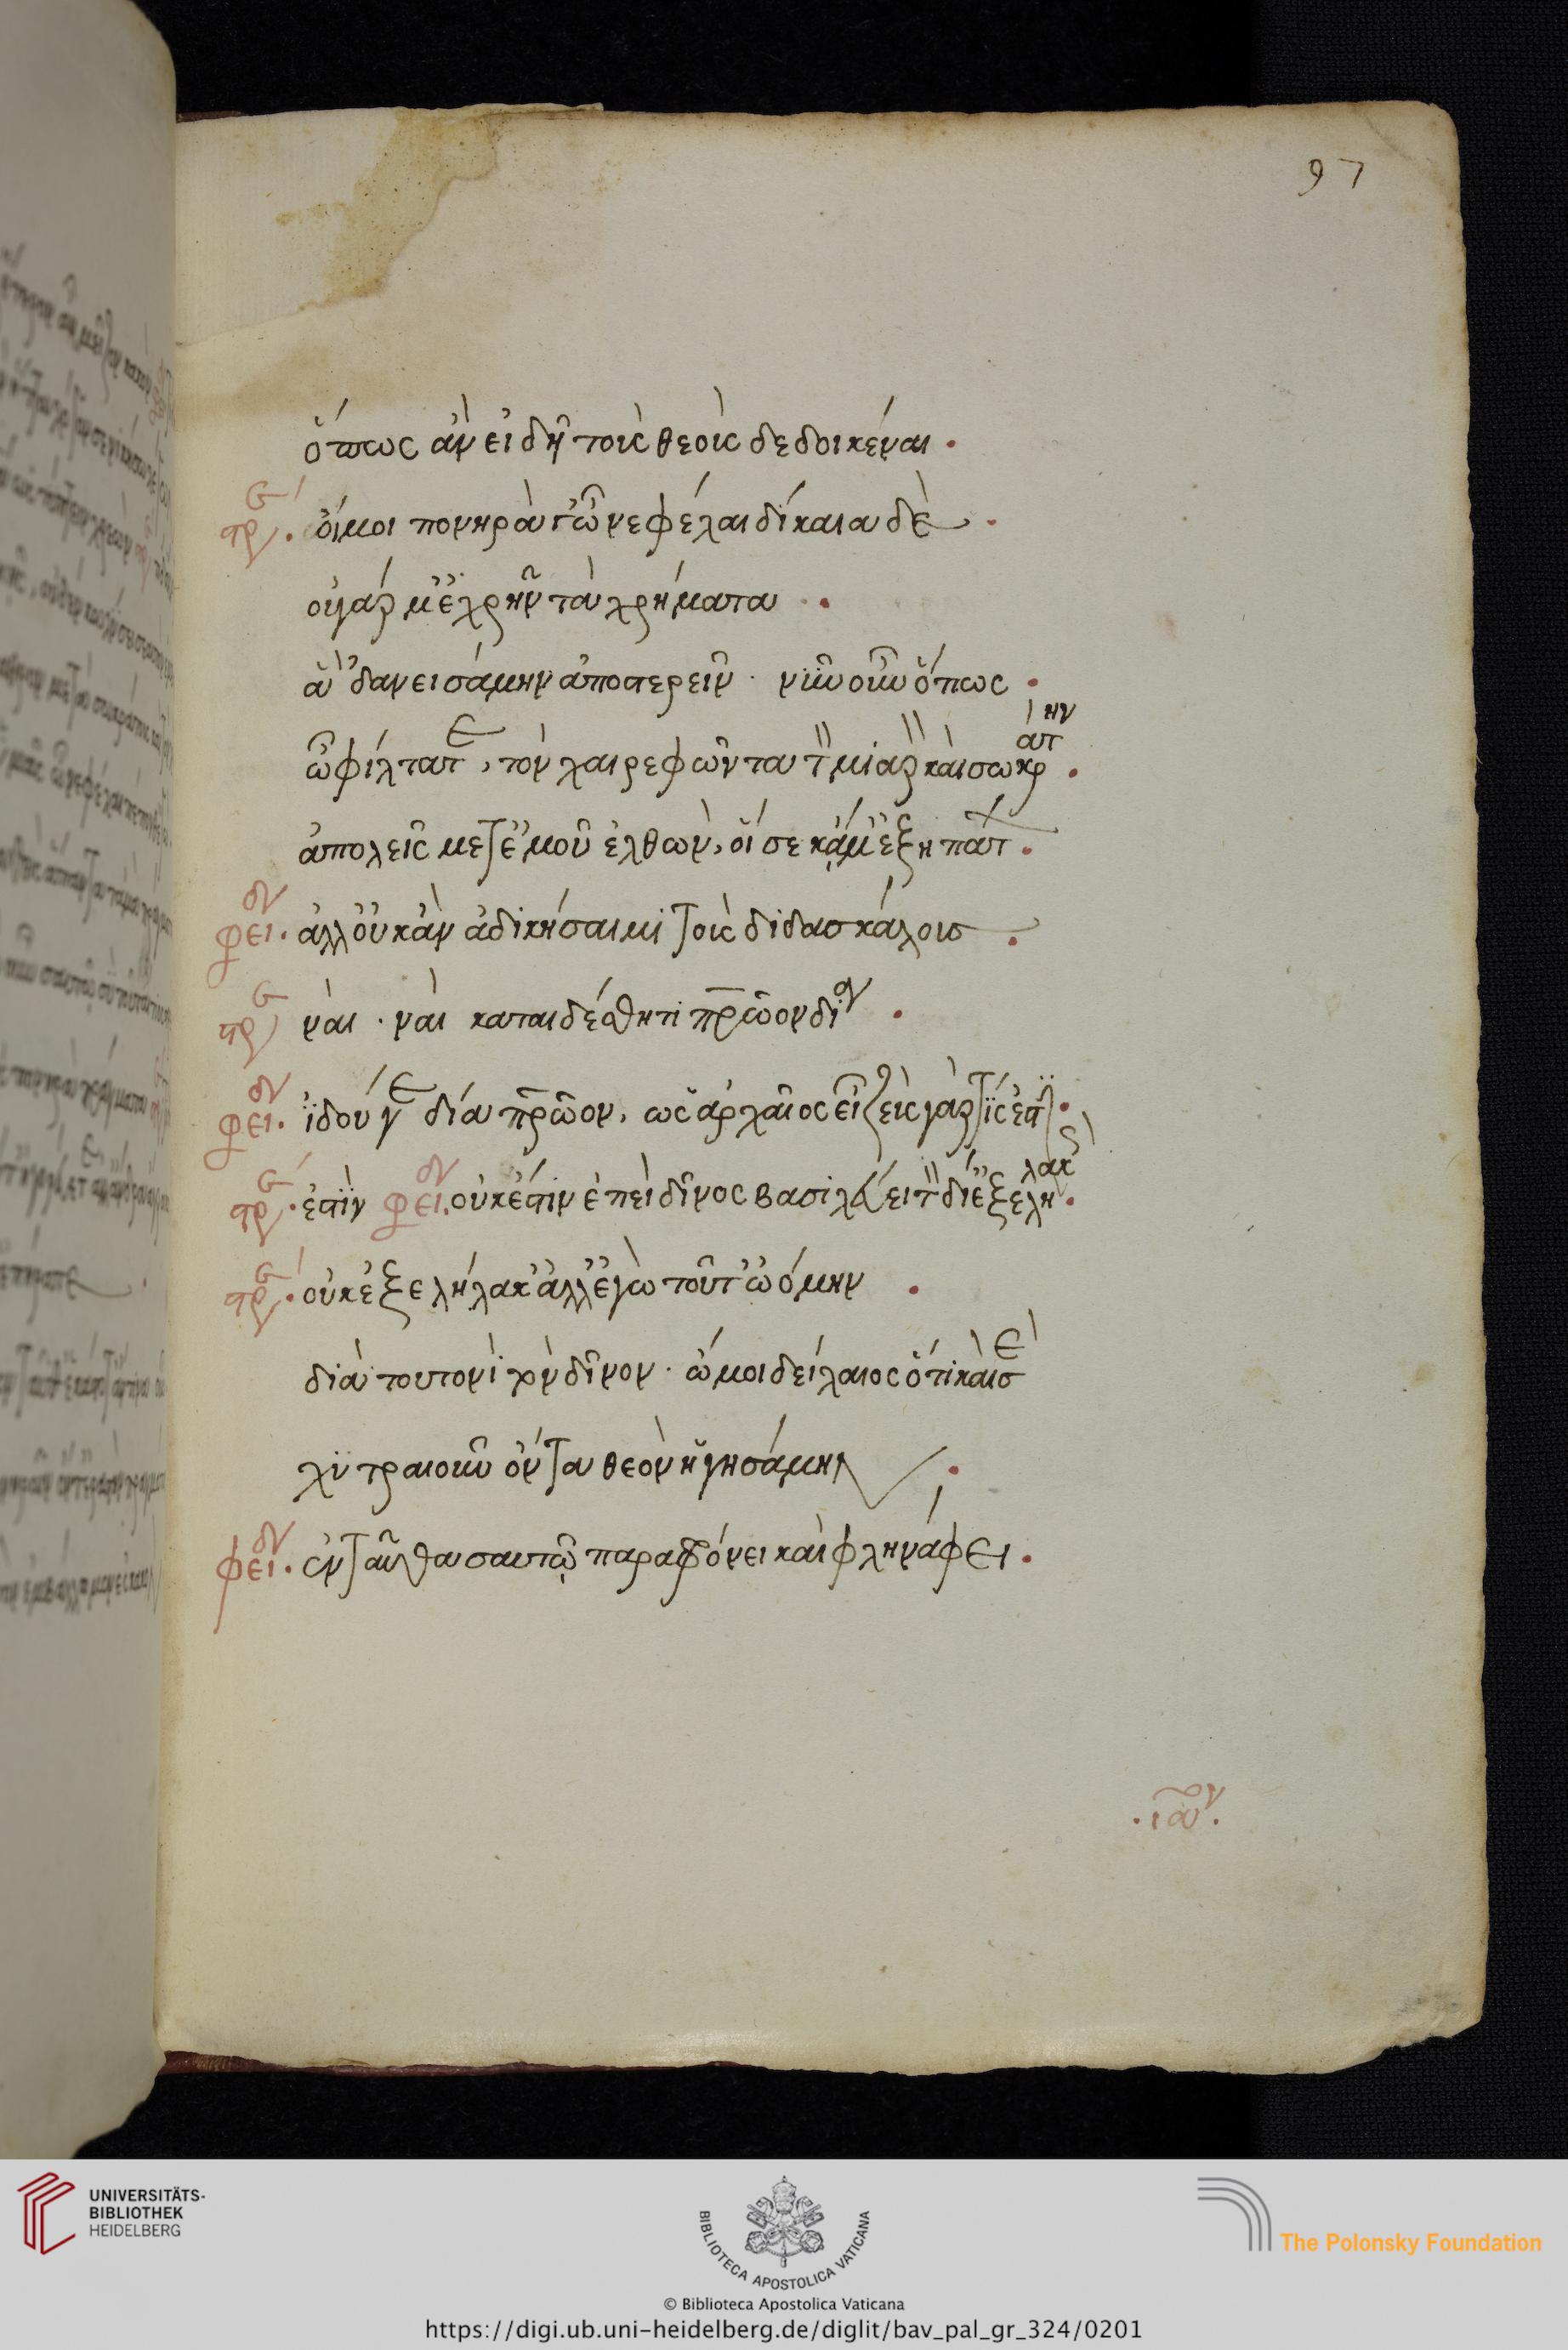 97
ὅπως ἂν εἰδῆ τοὺς θεοὺς δεδοικέναι.
στρ. οἴμοι πονηρά γ' ὦ νεφέλαι δίκαια δὲ.
οὐ γάρ μ' ἐχρῆν τὰ χρήματα.
ἃ 'δανεισάμην ἀποστερεῖν. νῦν οὖν ὅπως.
ὦ φίλτατε, τὸν χαιρεφῶντα τὸν μιαρὸν καὶ σωκράτην.
ἀπολεῖς μετ' ἐμοῦ ἐλθών, οἵ σε κἄμ' ἐξηπάτων.
φειδ. ἀλλ' οὐκ ἂν ἀδικήσαιμι τοὺς διδασκάλους.
στρ. ναὶ. ναὶ καταιδέσθητι πατρῶον δία.
φειδ. ἰδού γε δία πατρῶον, ὡς ἀρχαῖος εἶ ζεὺς γάρ τίς ἐστιν.
στρ. ἐστὶν φειδ. οὐκ ἔστιν ἐπεὶ δῖνος βασιλεύει τὸν δί' ἐξεληλακώς.
στρ. οὐκ ἐξελήλακ' ἀλλ' ἐγὼ τοῦτ' ὠόμην.
διὰ τουτονὶ τὸν δῖνον. ὤμοι δείλαιος ὅτι καὶ σὲ
χυτραιοῦν ὄντα θεὸν ἡγησάμην.
φειδ. ἐνταῦθα σαυτῷ παραφρόνει καὶ φληνάφει.
UNIVERSITÄTS-
BIBLIOTHEK
HEIDELBERG
BIBLIOTECA APOSTOLICA VATICANA
The Polonsky Foundation
© Biblioteca Apostolica Vaticana
https://digi.ub.uni-heidelberg.de/diglit/bav_pal_gr_324/0201